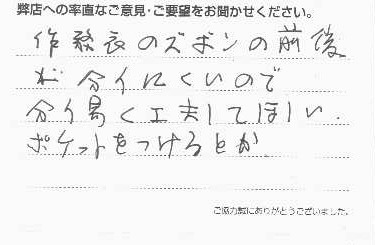 弊店への率直なご意見・ご要望をお聞かせください。
作務衣のズボンの前後
が分りにくいので
分り易く工夫してほしい.
ポケットをつけるとか
ご協力誠にありがとうございました。